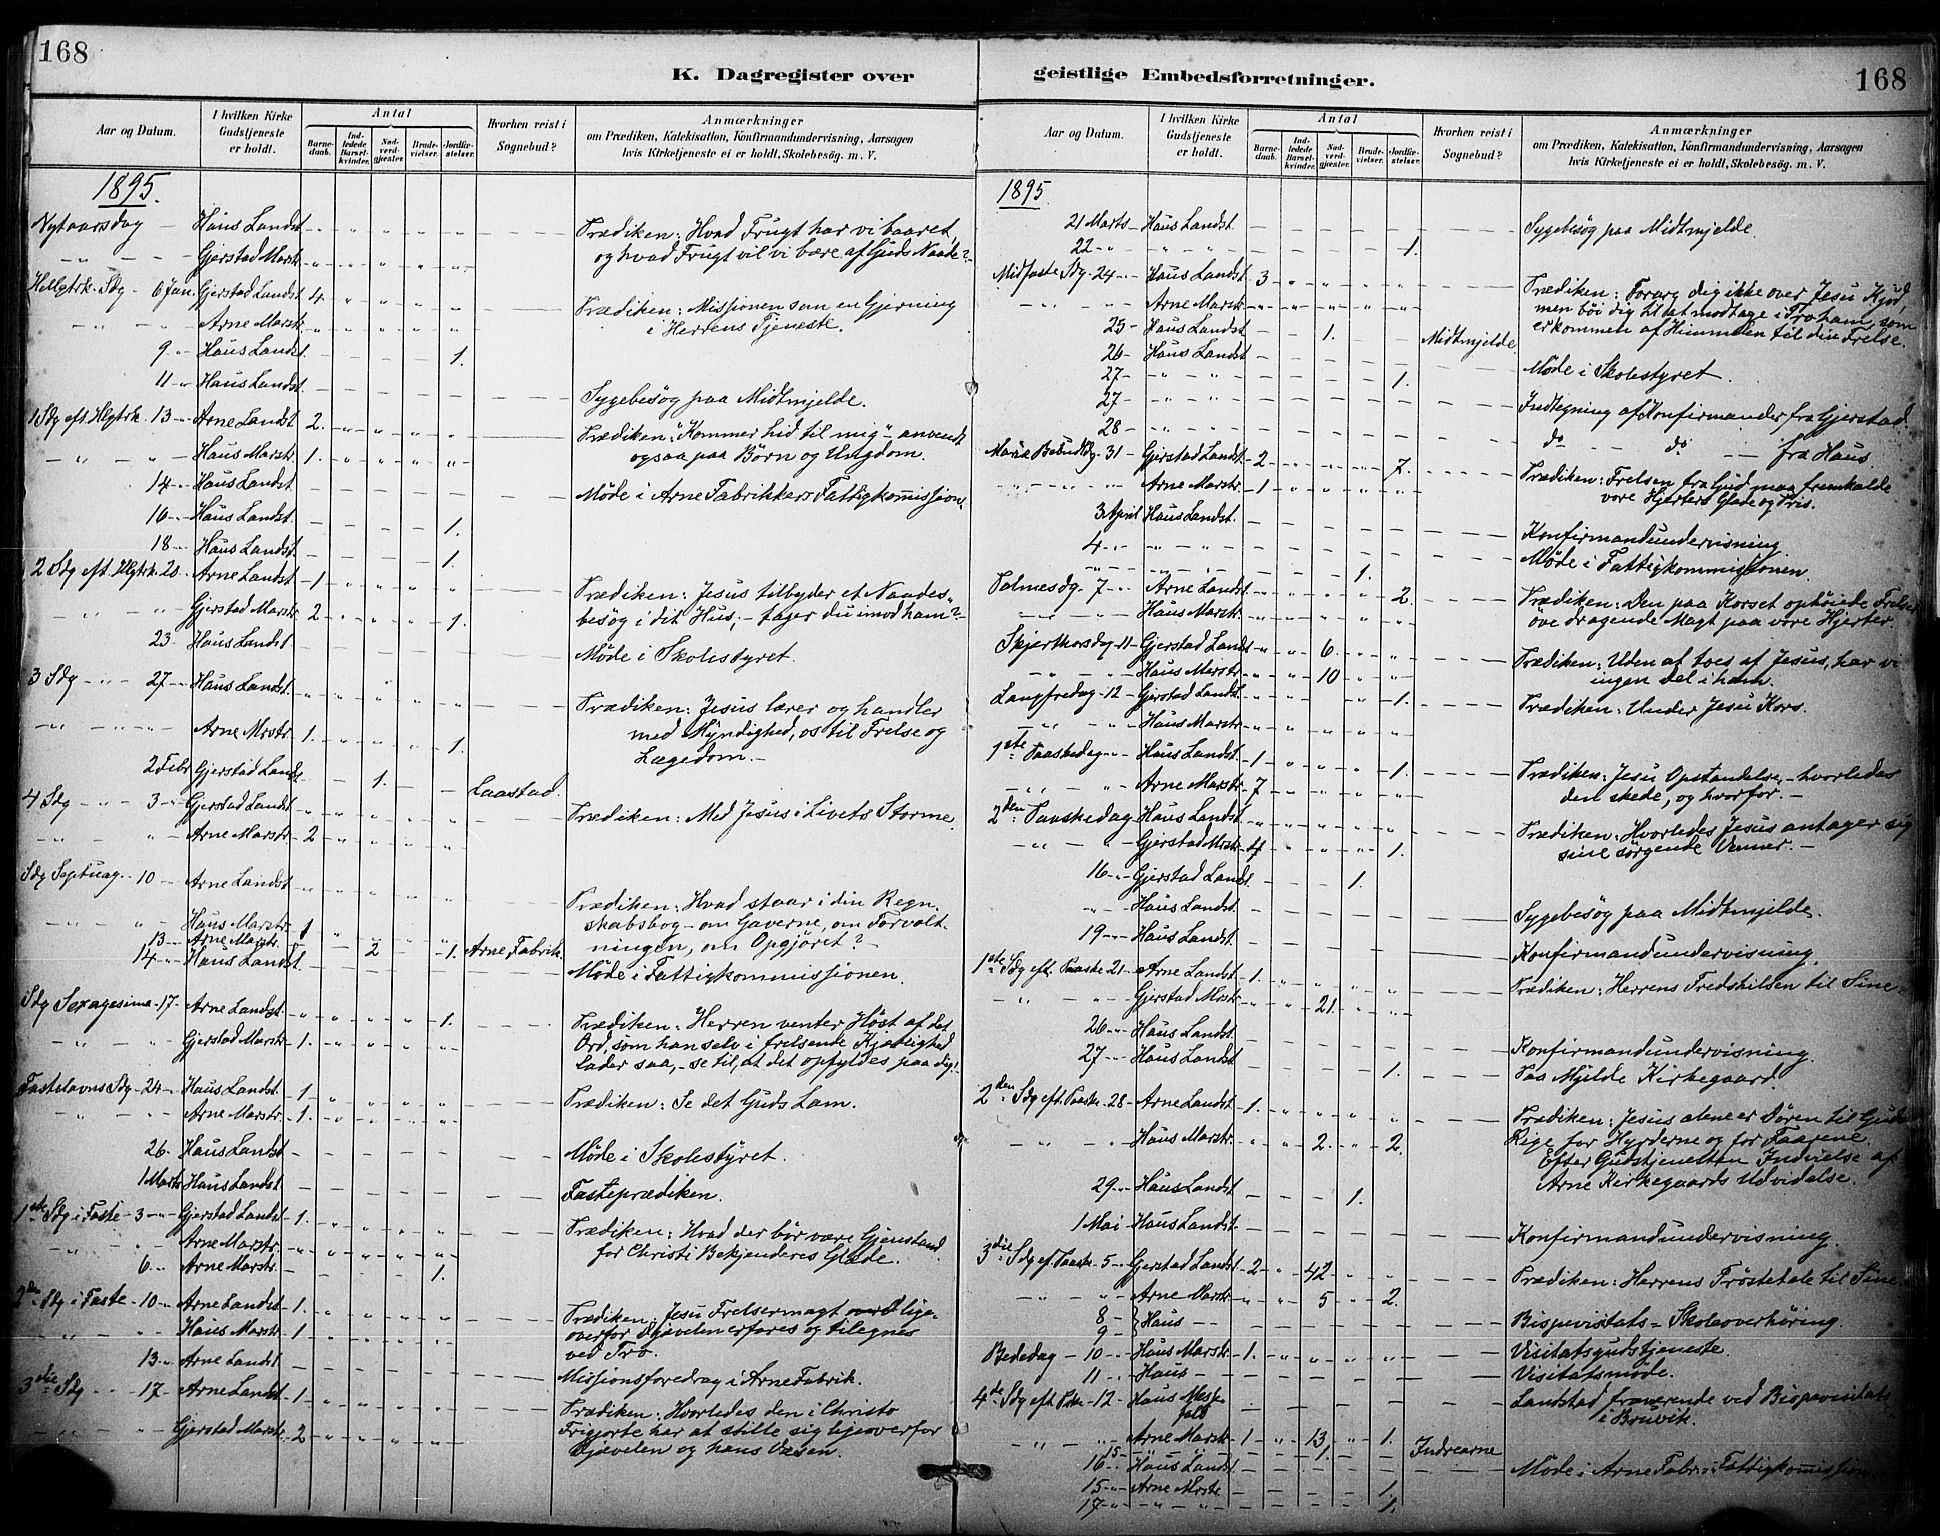 168
K. Dagregister over
Aar og Datum.
I hvilken Kirke Gudstjeneste er holdt.
Antal
Barnedaab.
Indledede Barselkvinder.
Nadverdgjester.
Brudevielser.
Jordfæstelser.
Hvorhen reist i Sognebud?
Anmærkninger
om Prædiken, Katekisation, Konfirmandundervisning, Aarsagen
hvis Kirketjeneste ei er holdt, Skolebesøg. m. V.
1895.
Nytaarsdag — Haus Landst. Prædiken: Hvad Frugt har vi baaret,
Gjerstad Marstr. og hvad Frugt vil vi bære af Guds Naade?
Hellgtrk. Sdg — 6 Jan. Gjerstad Landst. 4. Prædiken: Missionen som en Gjerning
Arne Marstr. i Herrens Tjeneste.
9 Haus Landst. 1.
11 Haus Landst. Sygebesøg paa Midtmjelde.
1 Sdg eft. Hlgtrk. 13 Arne Landst. 2. Prædiken: "Kommer hid til mig" — anvendt
Haus Marstr. 1. ogsaa paa Børn og Ungdom.
14 Haus Landst. Møde i Arne Fabrikkers Fattigkomission.
16 Haus Landst. 1.
18 Haus Landst. 1.
2 Sdg eft. Hlgtrk. 20 Arne Landst. 1 Prædiken: Jesus tilbyder et Naades-
Gjerstad Marstr. 2. 1. besøg i dit Hus; — tager du imod ham?
23 Haus Landst. Møde i Skolestyret.
3 Sdg 27 Haus Landst. Prædiken: Jesus lærer og handler
med Myndighed, os til Frelse og
Arne Mrstr. 1. 1. Lægedom. —
2 Febr Gjerstad Landst. 1. Laastad.
4 Sdg 3 Gjerstad Landst. Prædiken: Med Jesus i Livets Storme.
Arne Marstr. 2
Sdg Septuag. 10 Arne Landst. Prædiken: Hvad staar i din Regn-
Haus Marstr. 1 skabsbog — om Gaverne, om Forvalt-
13 Arne Marstr. 2 1. Arne Fabrik. ningen, om Opgjöret? —
14 Haus Landst. Møde i Fattigkommissjonen.
Sdg Sexagesima 17 Arne Landst. 1. Prædiken: Herren venter Høst af det
Gjerstad Marstr. 1. Ord, som han selv i frelsende Kjærlighed
lader saa, — se til, at det opfyldes paa dig!
Fastelavns Sdg 24 Haus Landst. 1 Prædiken: Se det Guds Lam.
Arne Marstr. 1.
26 Haus Landst. Møde i Skolestyret.
1 Marts Haus Landst. Fasteprædiken.
1ste Sdg i Faste 3 Gjerstad Landst. 1. Prædiken: Hvad der bör være Gjenstand
Arne Marstr. for Christi Bekjenderes Glæde.
6 Arne Marstr. 1.
2den Sdg i Faste 10 Arne Landst. 1. Prædiken: Jesu Frelsermagt lige-
Haus Marstr. 1 overfor Djævelen erfares og tilegnes
ved Tro.
13 Arne Landst. Missionsforedrag i Arne Fabrik.
3die Sdg 17 Arne Landst. 1 Prædiken: Hvorledes den i Christo
Gjerstad Marstr. 2 Frigjorte har at stille sig ligeoverfor
Djævelen og hans Væsen.
168
geistlige Embedsforretninger.
Aar og Datum.
I hvilken Kirke Gudstjeneste er holdt.
Antal
Barnedaab.
Indledede Barselkvinder.
Nadverdgjester.
Brudevielser.
Jordfæstelser.
Hvorhen reist i Sognebud?
Anmærkninger
om Prædiken, Katekisation, Konfirmandundervisning, Aarsagen
hvis Kirketjeneste ei er holdt, Skolebesøg. m. V.
1895
21 Marts Haus Landst. Sygebesøg paa Midtmjelde.
22 1.
Midfaste Sdg. 24 Haus Landst. 3 Prædiken: Forarg dig ikke over Jesu Kjød,
Arne Marstr. men böi dig til at modtage i Tro ham, som
25 Haus Landst. 1. Midtmjelde. er kommen af Himmelen til din Frelse.
26 Haus Landst. Møde i Skolestyret.
27 1.
27 Indtegning af Konfirmander fra Gjerstad.
28 do do fra Haus.
Mariæ Bebud. Sdg 31 Gjerstad Landst. 2 7. Prædiken: Frelsen fra Gud maa fremkalde
Arne Marstr. 1 vore Hjerters Glæde og Pris.
3 April Haus Landst. Konfirmandundervisning.
4 Møde i Fattigkommissjonen.
1.
Palmesdg. 7 Arne Landst. 2. Prædiken: Den paa Korset ophöiede Frelser
Haus Marstr. öve dragende Magt paa vore Hjerter.
Skjærthorsdag 11 Gjerstad Landst. 6. Prædiken: Uden at toes af Jesus, har vi
Haus Marstr. 10 ingen Del i ham.
Langfredag 12 Gjerstad Landst. 1. Prædiken: Under Jesu Kors.
Haus Marstr.
1ste Paaskedag Haus Landst. 1 1. Prædiken: Jesu Opstandelse, — hvorledes
Arne Marstr. 7 den skede, og hvorfor. —
2den Paaskedag Haus Landst. Prædiken: Hvorledes Jesus antager sig
Gjerstad Mrstr. 4 1. sine sörgende Venner. —
16 Gjerstad Landst. 1.
Haus Landst. Sygebesøg paa Midtmjelde.
19 Haus Landst. Konfirmandundervisning.
1ste Sdg eft. Paaske 21 Arne Landst. 1. Prædiken: Herrens Fredshilsen til Sine.
Gjerstad Mrstr. 21.
26 Haus Landst. Konfirmandundervisning.
27 Haus Landst. 1. Paa Mjelde Kirkegaard.
2den Sdg eft. Paaske 28 Arne Landst. 1. Prædiken: Jesus alene er Dören til Guds
Haus Marstr. 2. 2. Rige for Hyrderne og for Faarene.
Efter Gudstjenesten Indvielse af
Arne Kirkegaards Udvidelse.
29 Haus Landst. 1.
1 Mai Haus Landst. Konfirmandundervisning.
3die Sdg eft. Paaske 5 Gjerstad Landst. 2 42 Prædiken: Herrens Tröstetale til Sine.
Arne Marstr. 5 2.
8
9 } Haus Bispevisitats = Skoleoverhöring.
Bededag 10 Haus Marstr. 1. Visitatsgudstjeneste.
11 Haus Visitatsmøde.
4de Sdg eft. Pske 12 Haus Messefald Landstad fraværende ved Bispevisitats
i Bruvik.
Arne Marstr. 1 13 1.
15 1. Indrearne
16 Haus Landst. Møde i Arne Fabr. Fattigkomission
15 Arne Mrstr. 1.
17 1.